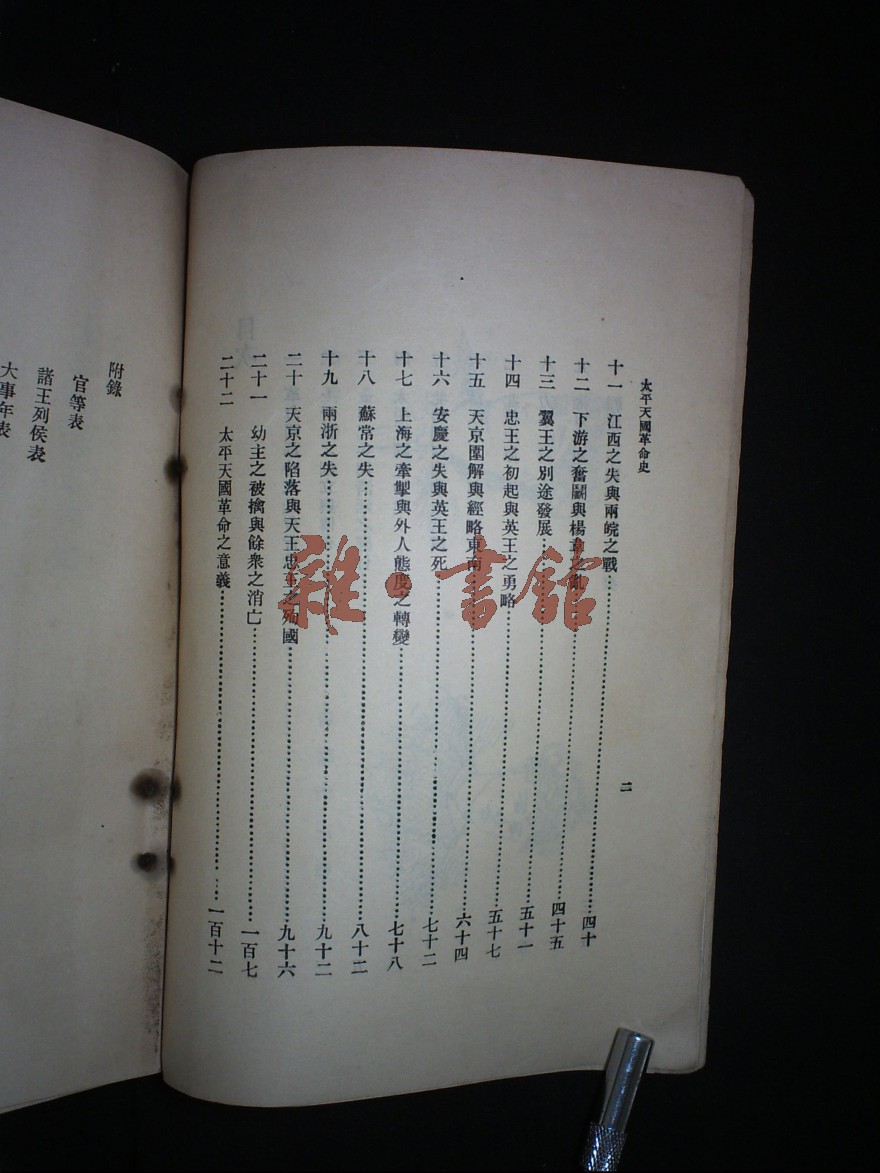 太平天國革命史
二
十一 江西之失與兩皖之戰 四十
十二 下游之奮鬭與楊韋之亂 四十五
十三 翼王之別途發展 五十一
十四 忠王之初起與英王之勇略 五十七
十五 天京圍解與經略東南 六十四
十六 安慶之失與英王之死 七十二
十七 上海之牽掣與外人態度之轉變 七十八
十八 蘇常之失 八十二
十九 兩浙之失 九十二
二十 天京之陷落與天王忠王之殉國 九十六
二十一 幼主之被擒與餘衆之消亡 一百七
二十二 太平天國革命之意義 一百十二
附錄
官等表
諸王列侯表
大事年表
雜·書館